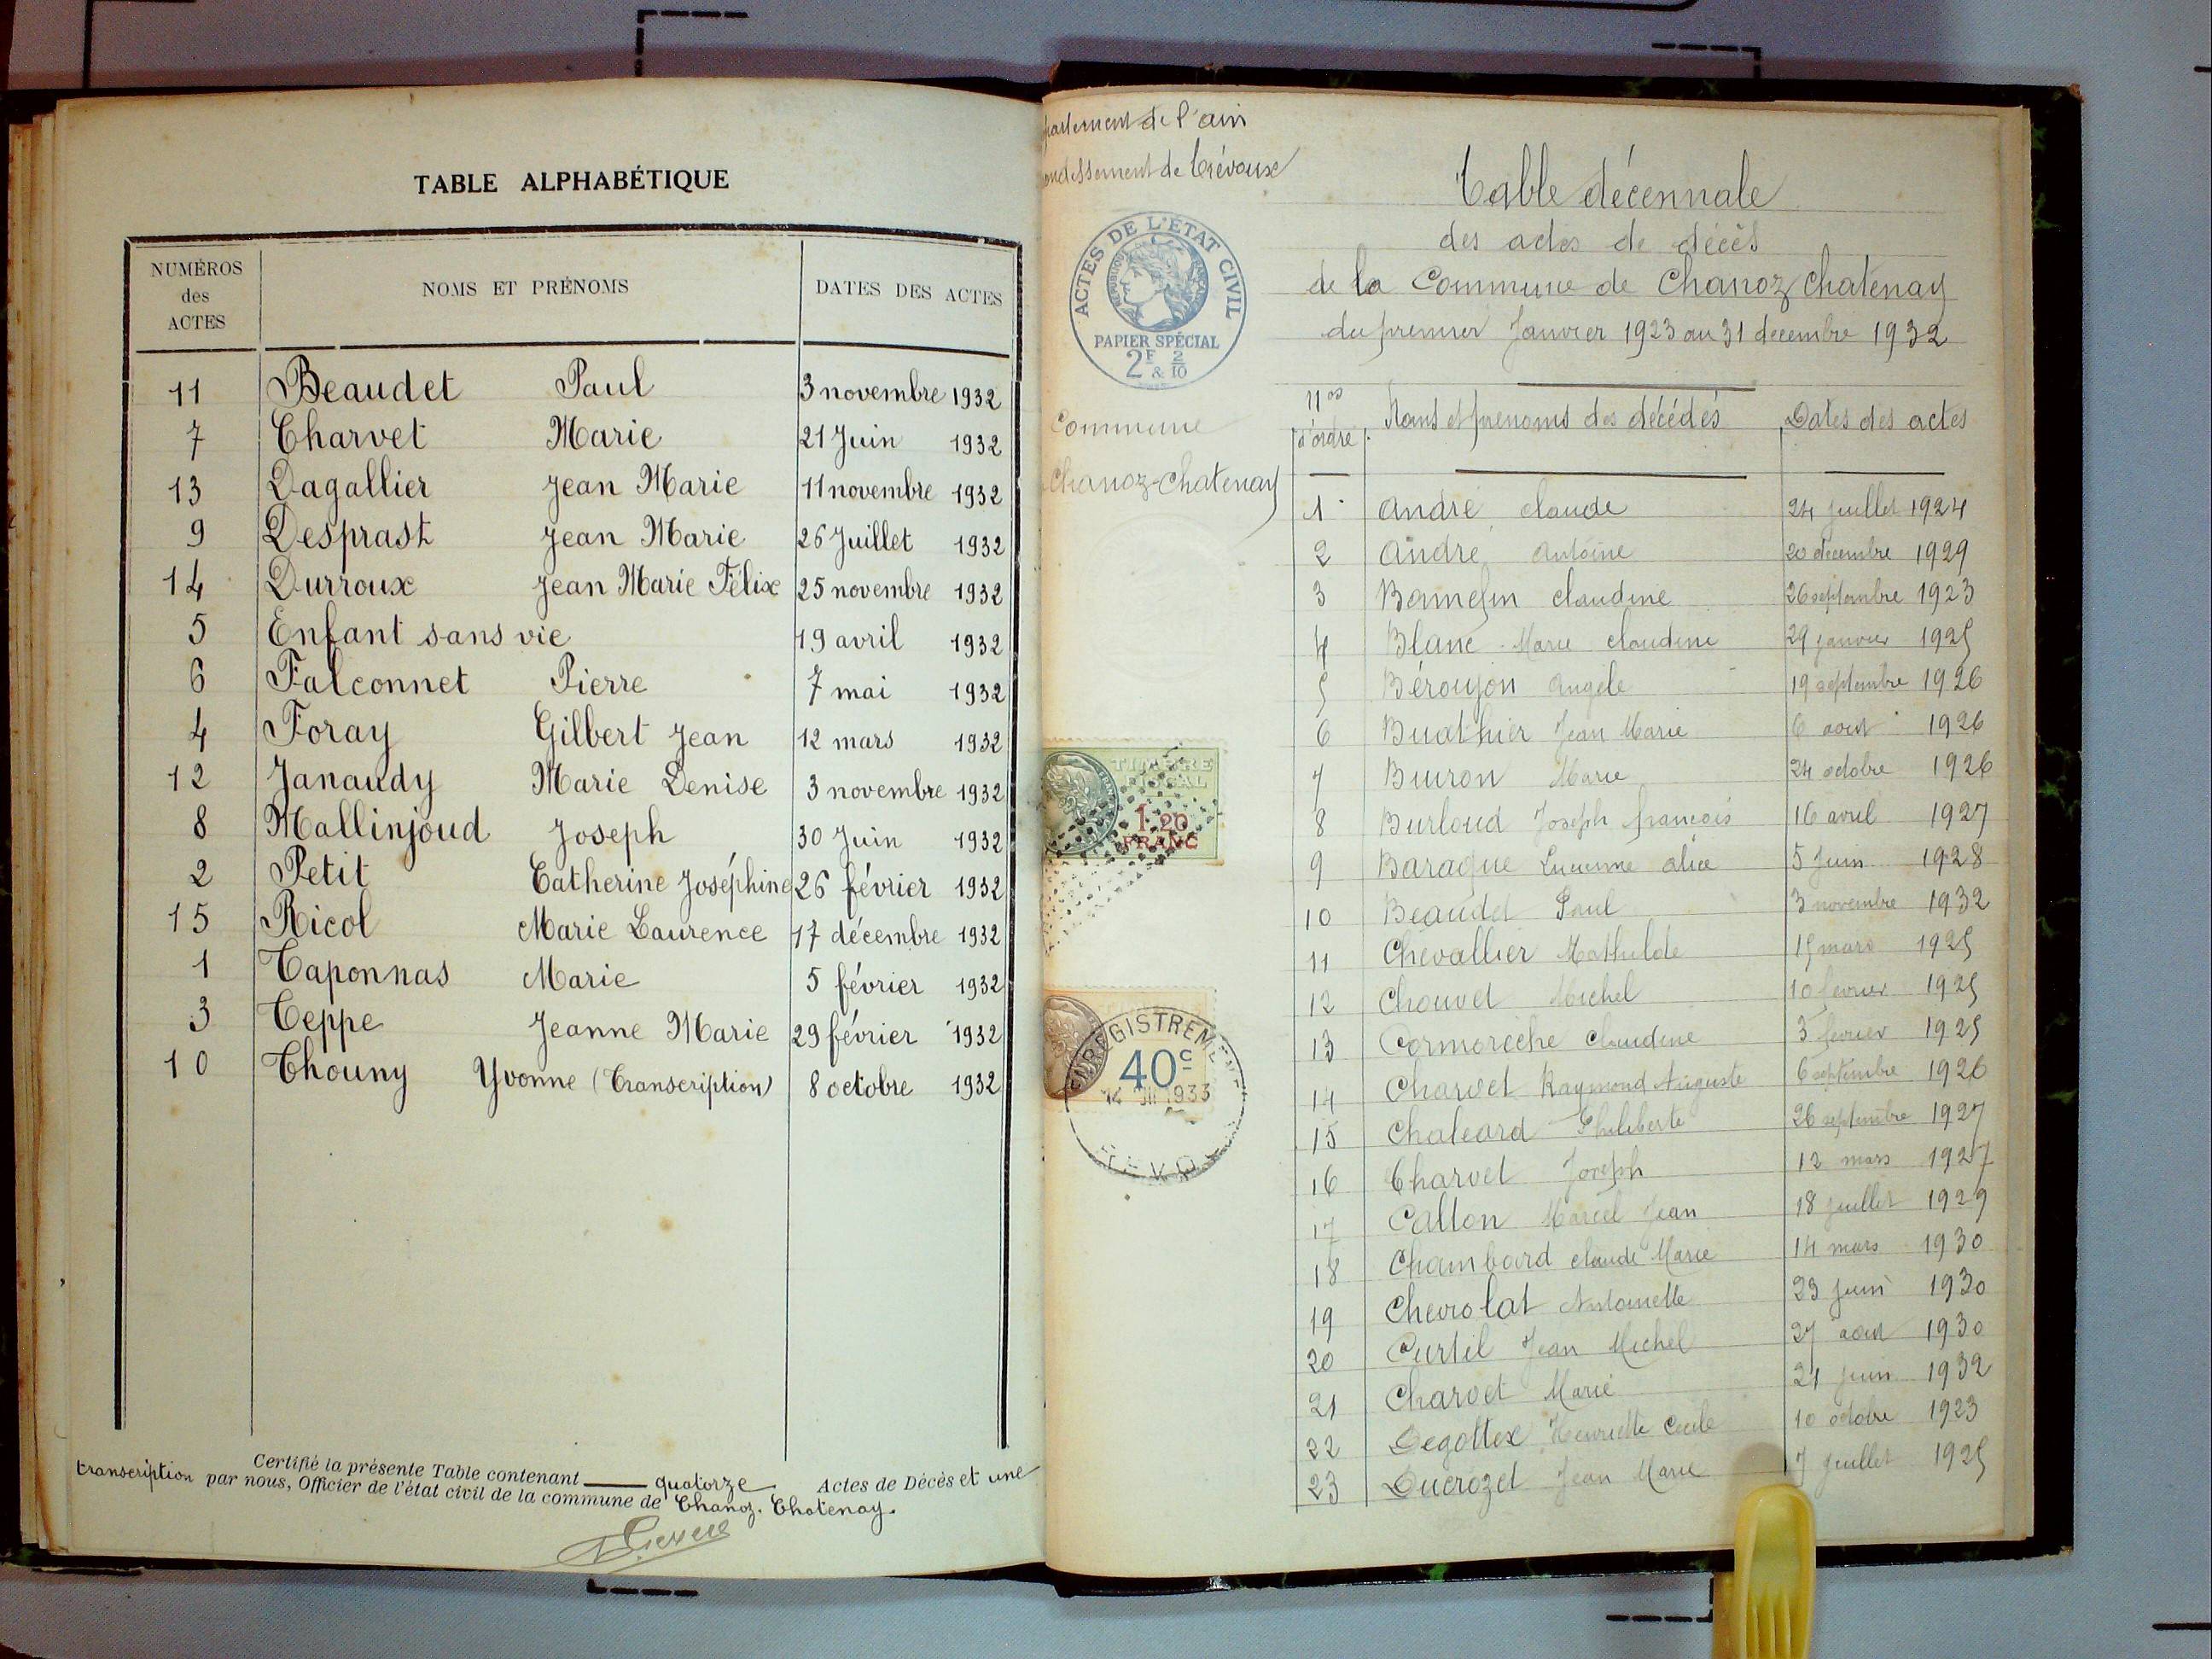 TABLE ALPHABÉTIQUE
NUMÉROS des ACTES NOMS ET PRÉNOMS DATES DES ACTES
11 Beaudet Paul 3 novembre 1932
7 Charvet Marie 21 Juin 1932
13 Dagallier Jean Marie 11 novembre 1932
9 Desprast Jean Marie 26 Juillet 1932
14 Durroux Jean Marie Félix 25 novembre 1932
5 Enfant sans vie 19 avril 1932
6 Falconnet Pierre 7 mai 1932
4 Foray Gilbert Jean 12 mars 1932
12 Janaudy Marie Denise 3 novembre 1932
8 Mallinjoud Joseph 30 Juin 1932
2 Petit Catherine Joséphine 26 février 1932
15 Ricol Marie Laurence 17 décembre 1932
1 Taponnas Marie 5 février 1932
3 Teppe Jeanne Marie 29 février 1932
10 Thouny Yvonne (Transcription) 8 octobre 1932
Certifié la présente Table contenant quatorze Actes de Décès et une
transcription par nous, Officier de l'état civil de la commune de Chanoz. Chatenay.
partement de l'ain
ondissement de Trévoux
ACTES DE L'ÉTAT CIVIL
PAPIER SPÉCIAL
2F & 2/10
Commune
Chanoz-Chatenay
TIMBRE
FISCAL
1.20
FRANC
ENREGISTREMENT
40c
1933
Table décennale
des actes de décès
de la Commune de Chanoz Chatenay
du premier Janvier 1923 au 31 decembre 1932
Nos d'ordre Noms et prenoms des décédés Dates des actes
1 André claude 24 juillet 1924
2 André Antoine 20 decembre 1929
3 claudine 26 septembre 1923
4 Blanc Marie claudine 29 janvier 1925
5 Béroujon Angèle 19 septembre 1926
6 Buathier Jean Marie 6 aout 1926
7 Buiron Marie 24 octobre 1926
8 Burloud Joseph françois 16 avril 1927
9 Baraque Lucienne alice 5 Juin 1928
10 Beaudet Paul 3 novembre 1932
11 Chevallier Mathilde 15 mars 1925
12 Chouvet Michel 10 fevrier 1925
13 Cormorèche Claudine 3 fevrier 1925
14 Charvet Raymond Auguste 6 septembre 1926
15 Chaleard Philiberte 26 septembre 1927
16 Charvet Joseph 12 mars 1927
17 Catton Marcel Jean 18 juillet 1929
18 Chambard claude Marie 14 mars 1930
19 Chevrolat Antoinette 23 juin 1930
20 Curtil Jean Michel 27 aout 1930
21 Charvet Marie 21 juin 1932
22 Degottex Henriette Cecile 10 octobre 1923
23 Ducrozet Jean Marie 7 juillet 1925